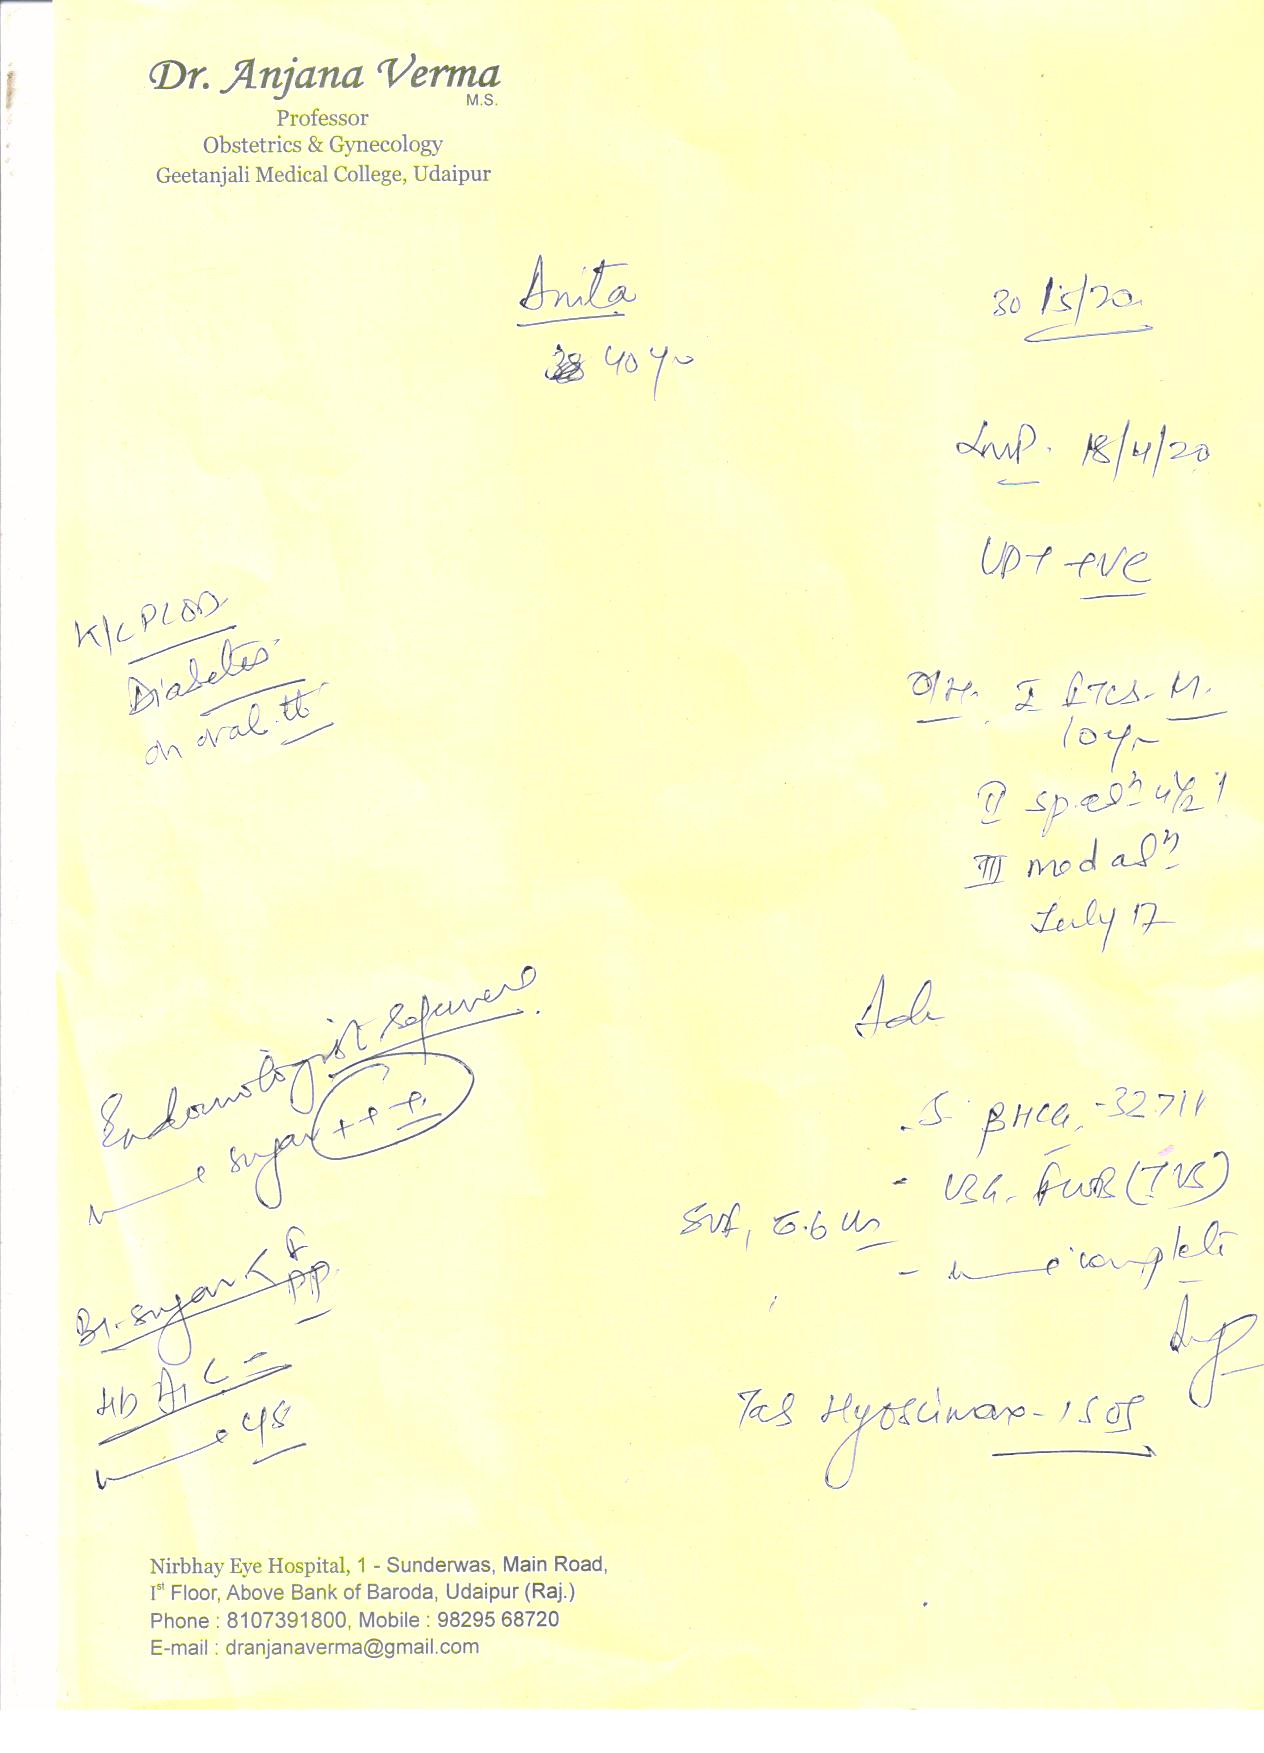 Dr. Anjana Verma
M.S.
Professor
Obstetrics & Gynecology
Geetanjali Medical College, Udaipur
Anita
30/5/20
40 yr
LMP. 18/4/20
UPT +ve
K/C PCOD
Diabetes
on oral tt
O/H. I LSCS - M.
10 yr
II sp. abn 4 1/2
III Med abn
July 17
Adv
Endocrinologist
sugar +++
- S. βHCG, - 32711
- USG. FWB (TVS)
SLF, 6.6 wks
- Urine complete
Bl. sugar < F
PP.
HB A1C =
Urine c/s
Tab Hyoscimax - 1 SOS
Nirbhay Eye Hospital, 1 - Sunderwas, Main Road,
Ist Floor, Above Bank of Baroda, Udaipur (Raj.)
Phone : 8107391800, Mobile : 98295 68720
E-mail : dranjanaverma@gmail.com